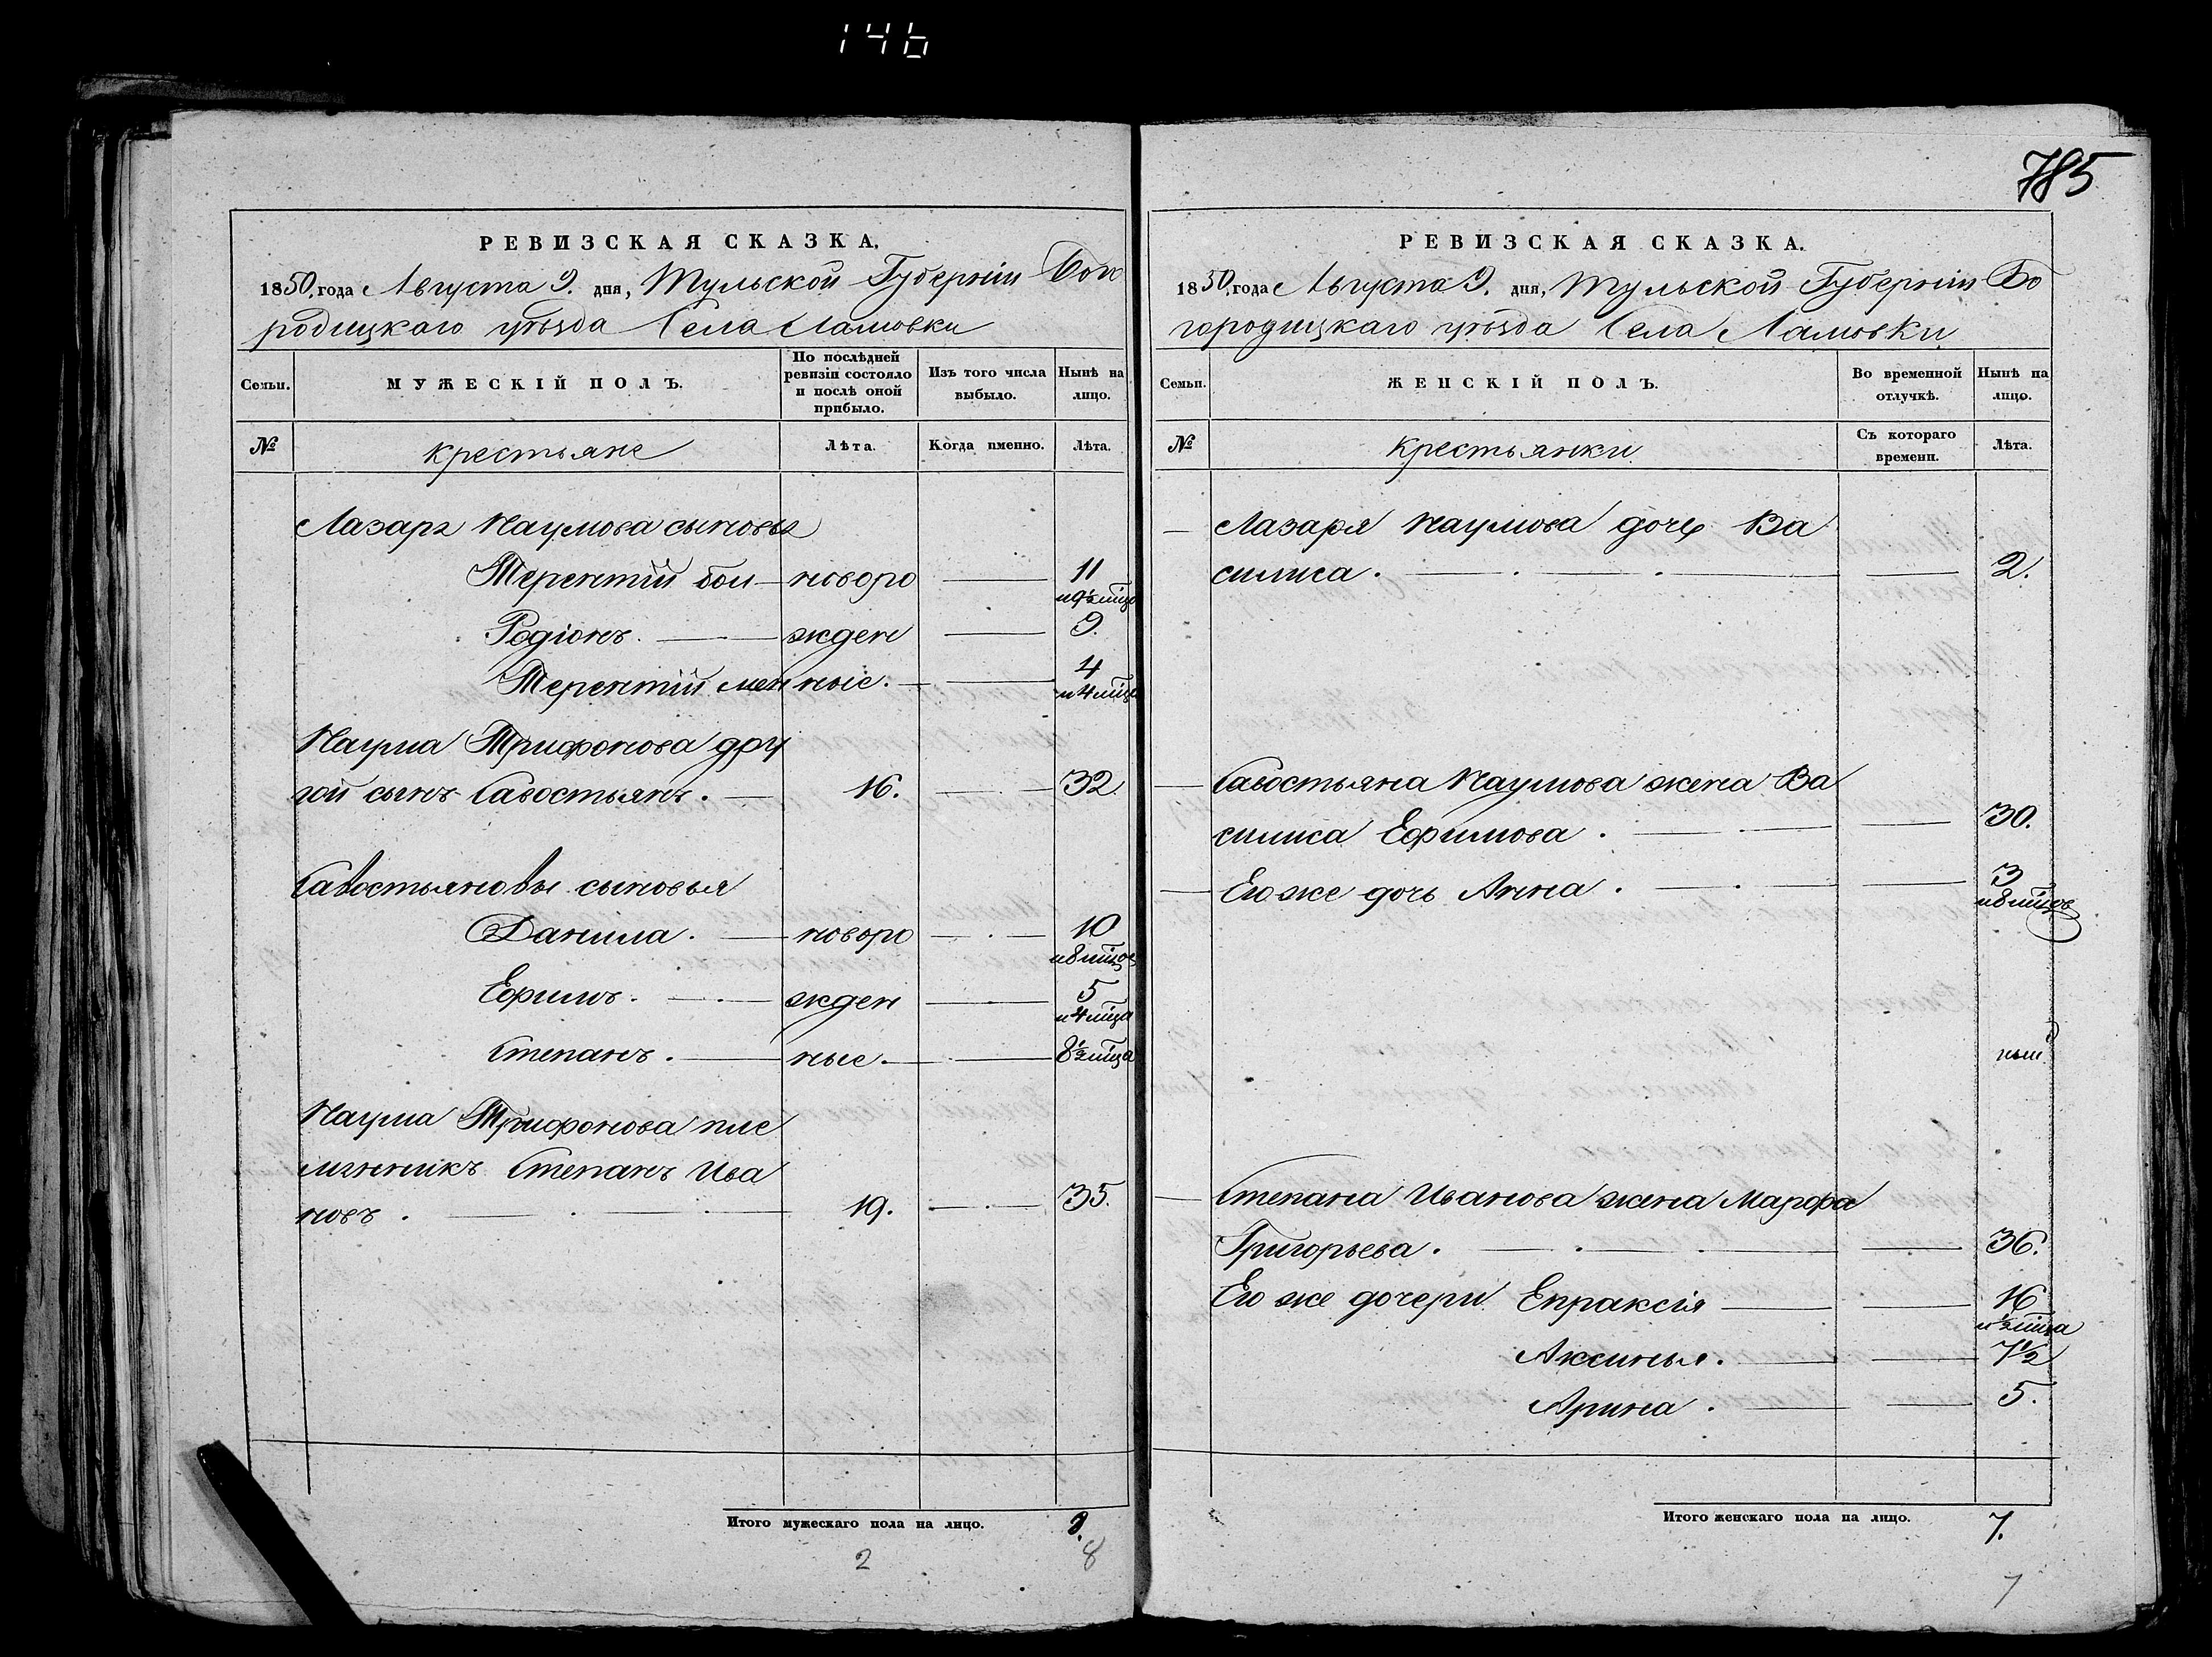 146
785
РЕВИЗСКАЯ СКАЗКА.
1850 года Августа 9. дня, Тульской Губерніи Бого
родицкаго уѣзда Села Ламовки
Семьи.
МУЖЕСКІЙ ПОЛЪ.
По послѣдней ревизіи состояло и послѣ оной прибыло.
Изъ того числа выбыло.
Нынѣ на лицо.
№
крестьяне
Лѣта.
Когда именно.
Лѣта.
Лазаря Наумова сыновья
Терентій бол — новоро — 11
и 9½ мцо
Родіонъ. — жден — 9.
Терентій мен ныіе. — 4
и 4 мца
Наума Трифонова дру
гой сынъ Савостьянъ. — 16. — 32
Савостьяновы сыновья
Данила. — новоро — 10
и 8 мцов
Ефимъ. — жден — 5
и 4 мца
Степанъ. — ные. — 8½ мца
Наума Трифонова пле
мянникъ Степанъ Ива
новъ. — 19. — 35.
Итого мужескаго пола на лицо. 8.
2 8
РЕВИЗСКАЯ СКАЗКА.
1850 года Августа 9. дня, Тульской Губерніи Бо
городицкаго уѣзда Села Ламовки
Семьи.
ЖЕНСКІЙ ПОЛЪ.
Во временной отлучкѣ.
Нынѣ на лицо.
№
крестьянки
Съ котораго времени.
Лѣта.
— Лазаря Наумова дочь Ва
силиса. — 2.
— Савостьяна Наумова жена Ва
силиса Ефимова. — 30.
— Его же дочь Анна. — 3
и 8 мцов
— Степана Иванова жена Марфа
Григорьева. — 36.
Его же дочери Епраксія — 16
и ½ мца
Аксинья. — 7½
Арина. — 5.
Итого женскаго пола на лицо. 7.
7